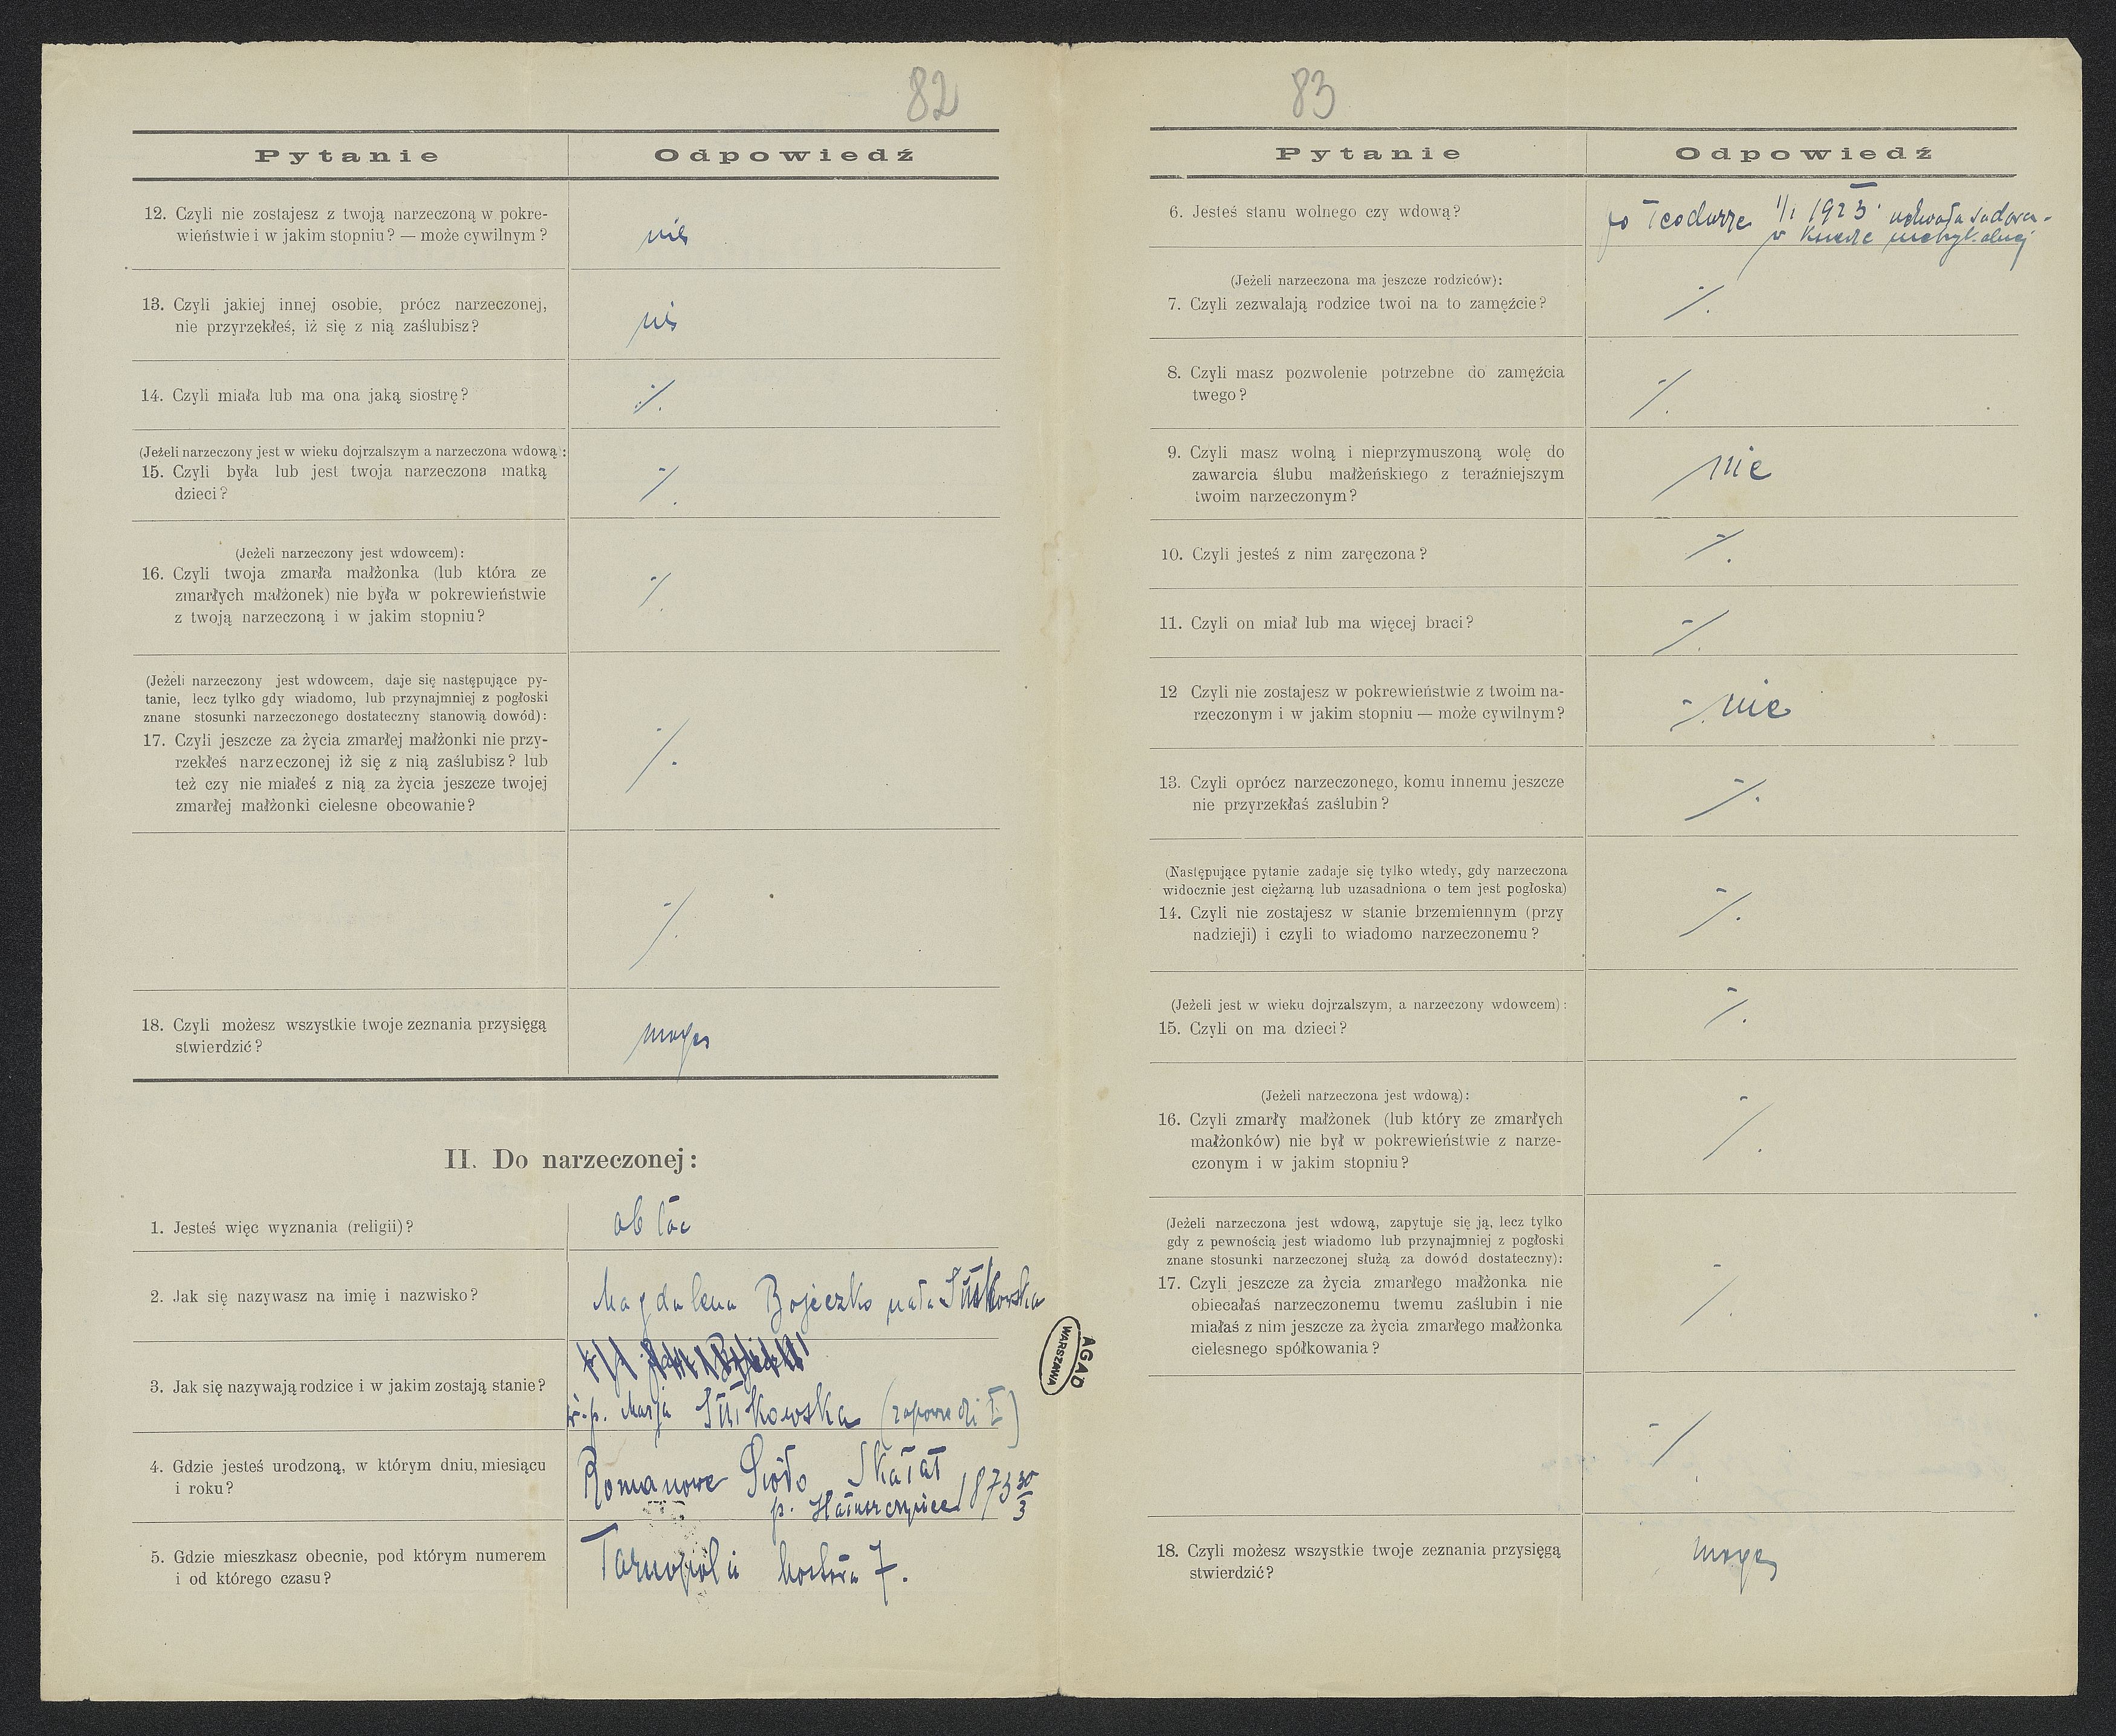 82
Pytanie Odpowiedź
12. Czyli nie zostajesz z twoją narzeczoną w pokre-
wieństwie i w jakim stopniu? — może cywilnym?
nie
13. Czyli jakiej innej osobie, prócz narzeczonej,
nie przyrzekłeś, iż się z nią zaślubisz?
nie
14. Czyli miała lub ma ona jaką siostrę?
·/.
(Jeżeli narzeczony jest w wieku dojrzalszym a narzeczona wdową):
15. Czyli była lub jest twoja narzeczona matką
dzieci?
-/.
(Jeżeli narzeczony jest wdowcem):
16. Czyli twoja zmarła małżonka (lub która ze
zmarłych małżonek) nie była w pokrewieństwie
z twoją narzeczoną i w jakim stopniu?
-/.
(Jeżeli narzeczony jest wdowcem, daje się następujące py-
tanie, lecz tylko gdy wiadomo, lub przynajmniej z pogłoski
znane stosunki narzeczonego dostateczny stanowią dowód):
17. Czyli jeszcze za życia zmarłej małżonki nie przy-
rzekłeś narzeczonej iż się z nią zaślubisz? lub
też czy nie miałeś z nią za życia jeszcze twojej
zmarłej małżonki cielesne obcowanie?
-/.
-/.
18. Czyli możesz wszystkie twoje zeznania przysięgą
stwierdzić?
mogę
II. Do narzeczonej:
1. Jesteś więc wyznania (religii)?
ob łac
2. Jak się nazywasz na imię i nazwisko?
Magdalena Bojeczko nata
3. Jak się nazywają rodzice i w jakim zostają stanie?
ś.p. Marja
4. Gdzie jesteś urodzoną, w którym dniu, miesiącu
i roku?
Romanowe Sioło Skałat
p. 1873 30/3
5. Gdzie mieszkasz obecnie, pod którym numerem
i od którego czasu?
Tarnopol 7.
AGAD
WARSZAWA
83
Pytanie Odpowiedź
6. Jesteś stanu wolnego czy wdową?
po Teodorze 1/1 1923 uchwała sądowa
w metrykalnej
(Jeżeli narzeczona ma jeszcze rodziców):
7. Czyli zezwalają rodzice twoi na to zamęźcie?
-/.
8. Czyli masz pozwolenie potrzebne do zamęźcia
twego?
-/.
9. Czyli masz wolną i nieprzymuszoną wolę do
zawarcia ślubu małżeńskiego z teraźniejszym
twoim narzeczonym?
nie
10. Czyli jesteś z nim zaręczona?
-/.
11. Czyli on miał lub ma więcej braci?
-/.
12 Czyli nie zostajesz w pokrewieństwie z twoim na-
rzeczonym i w jakim stopniu — może cywilnym?
-/. nie
13. Czyli oprócz narzeczonego, komu innemu jeszcze
nie przyrzekłaś zaślubin?
-/.
(Następujące pytanie zadaje się tylko wtedy, gdy narzeczona
widocznie jest ciężarną lub uzasadniona o tem jest pogłoska)
14. Czyli nie zostajesz w stanie brzemiennym (przy
nadzieji) i czyli to wiadomo narzeczonemu?
-/.
(Jeżeli jest w wieku dojrzalszym, a narzeczony wdowcem):
15. Czyli on ma dzieci?
-/.
(Jeżeli narzeczona jest wdową):
16. Czyli zmarły małżonek (lub który ze zmarłych
małżonków) nie był w pokrewieństwie z narze-
czonym i w jakim stopniu?
-/.
(Jeżeli narzeczona jest wdową, zapytuje się ją, lecz tylko
gdy z pewnością jest wiadomo lub przynajmniej z pogłoski
znane stosunki narzeczonej służą za dowód dostateczny):
17. Czyli jeszcze za życia zmarłego małżonka nie
obiecałaś narzeczonemu twemu zaślubin i nie
miałaś z nim jeszcze za życia zmarłego małżonka
cielesnego spółkowania?
-/.
-/.
18. Czyli możesz wszystkie twoje zeznania przysięgą
stwierdzić?
mogę